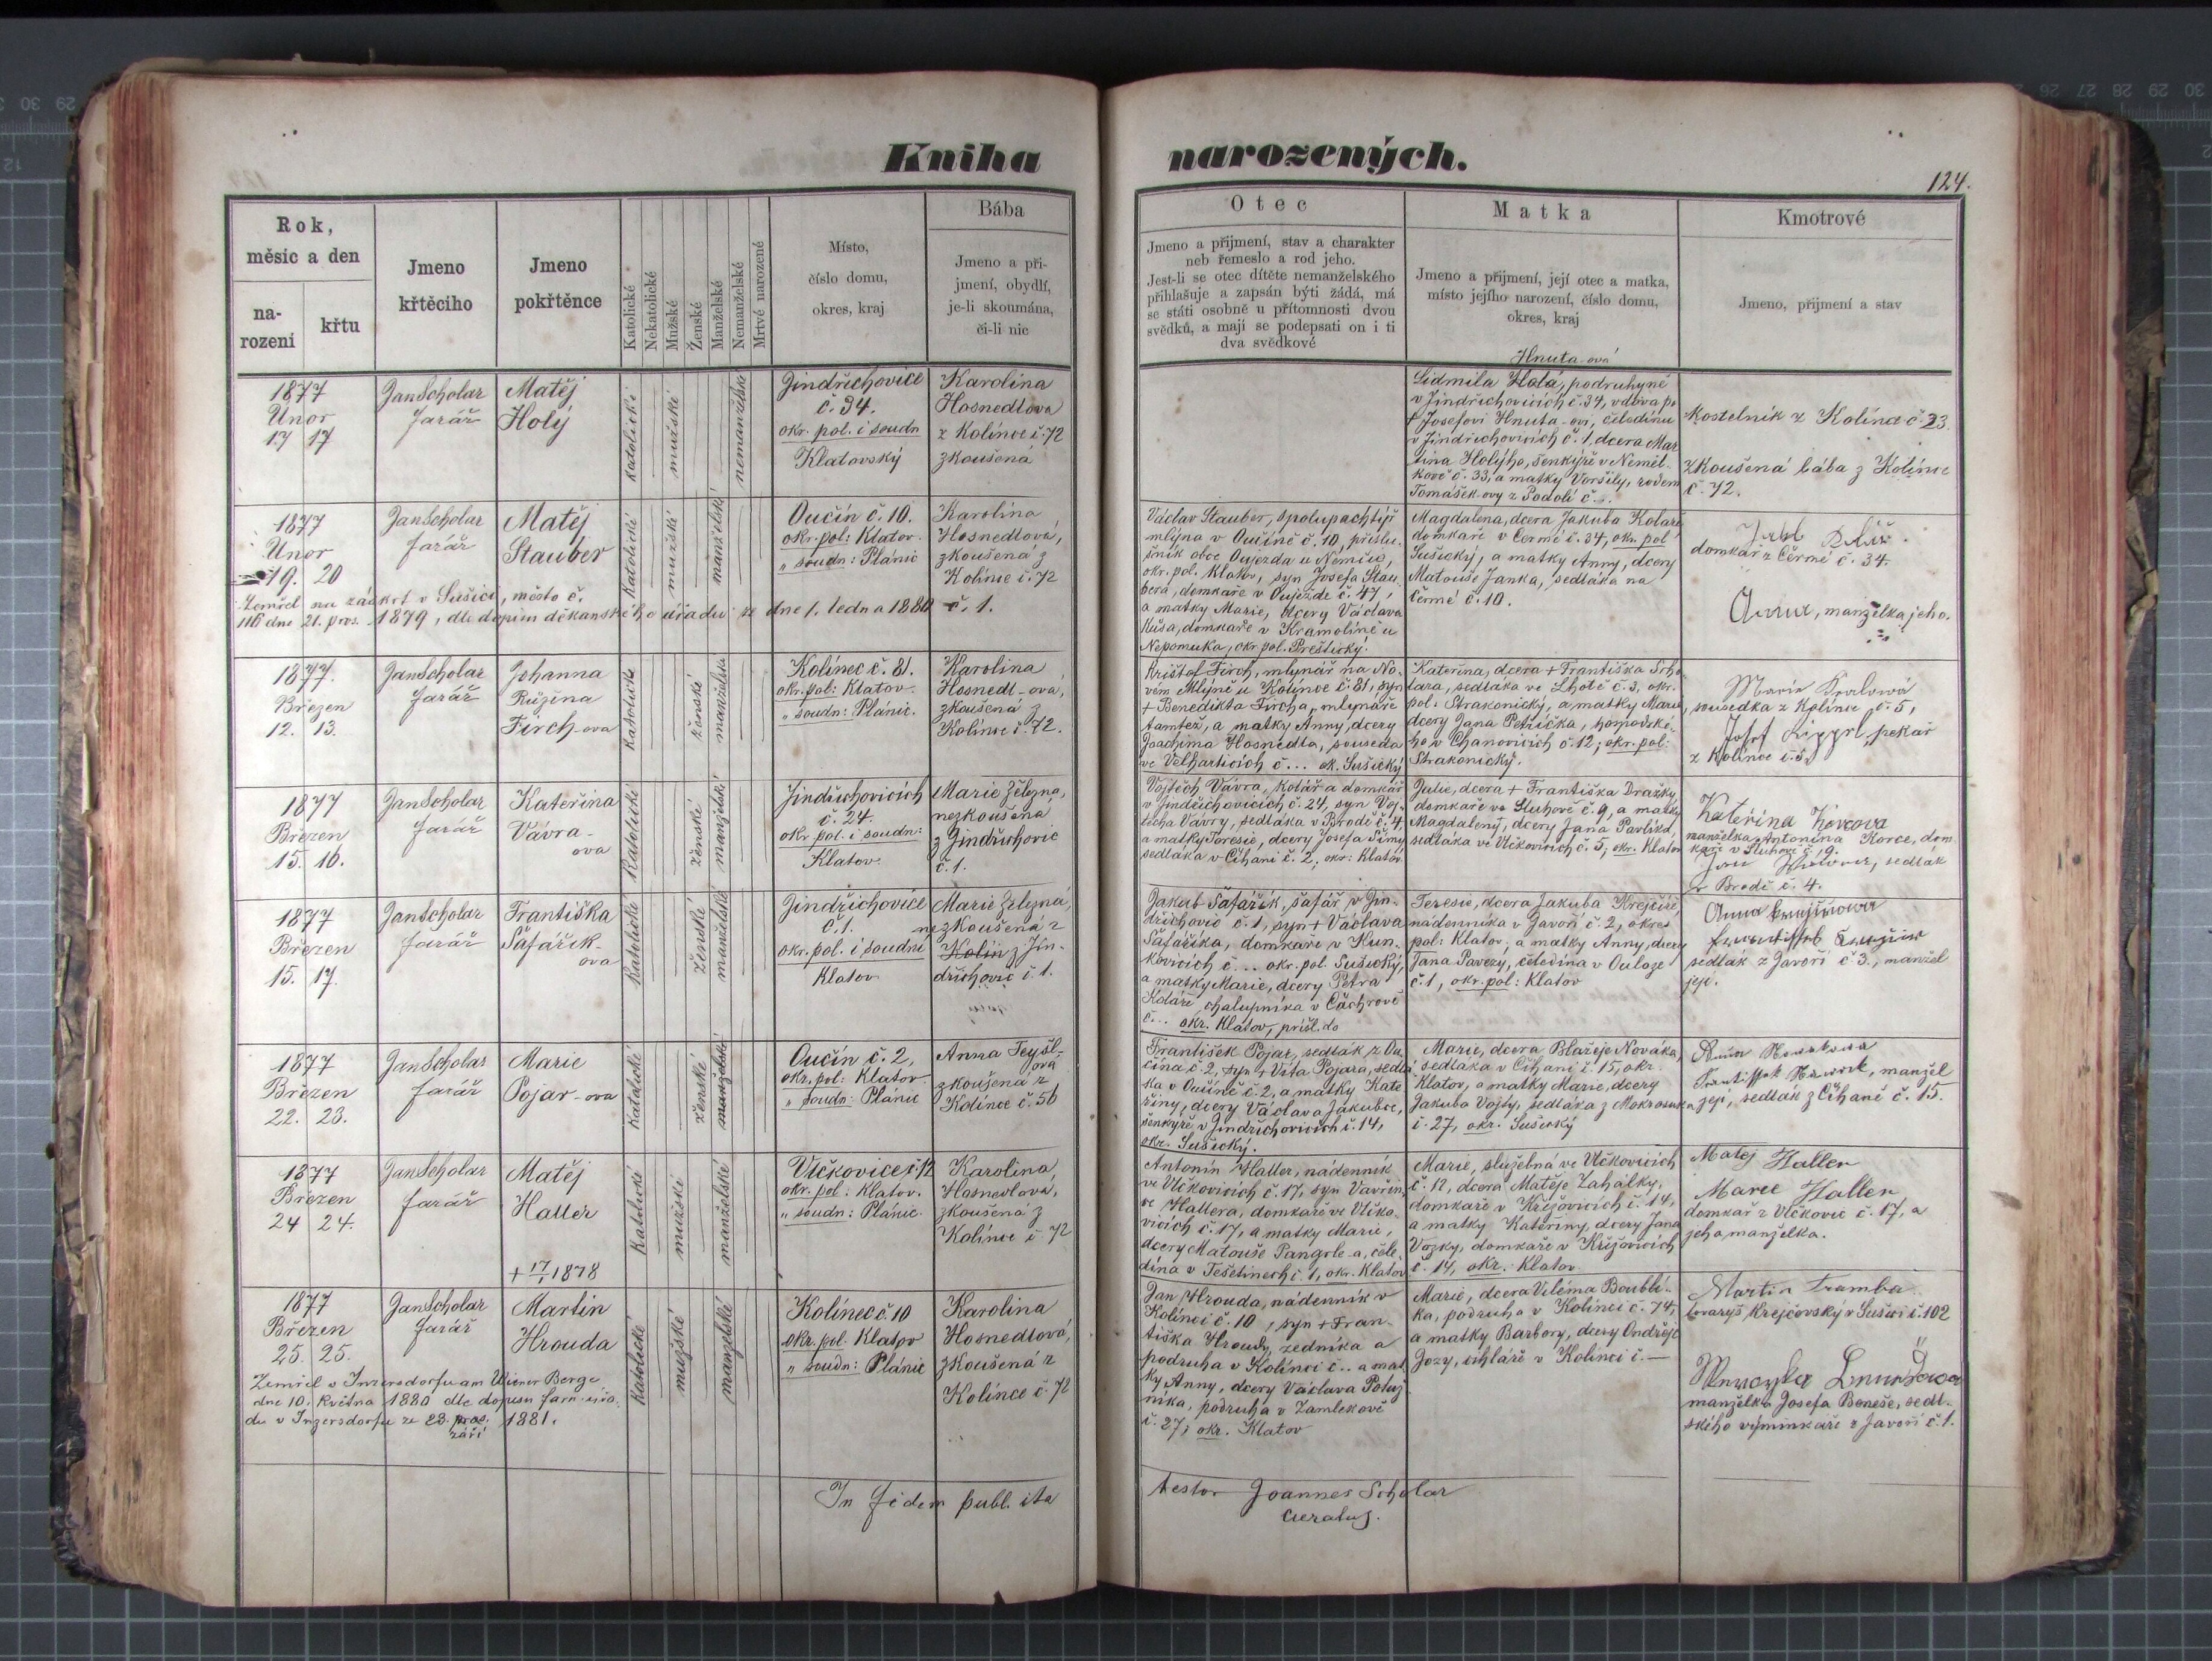 Kniha narozených.
124.
Rok,
měsíc a den
na-
rození
křtu
Jmeno
křtěcího
Jmeno
pokřtěnce
Katolické
Nekatolické
Mužské
Ženské
Manželské
Nemanželské
Mrtvě narozené
Místo,
číslo domu,
okres, kraj
Bába
Jmeno a při-
jmení, obydlí,
je-li skoumána,
či-li nic
Otec
Jmeno a přijmení, stav a charakter
neb řemeslo a rod jeho.
Jest-li se otec dítěte nemanželského
přihlašuje a zapsán býti žádá, má
se státi osobně u přítomnosti dvou
svědků, a mají se podepsati on i ti
dva svědkové
Matka
Jmeno a přijmení, její otec a matka,
místo jejího narození, číslo domu,
okres, kraj
Kmotrové
Jmeno, přijmení a stav
1877
Unor
17 17
Jan Scholar
farář
Matěj
Holý
katolické
mužské
nemanželské
Jindřichovice
č. 34.
okr. pol. i soudn
Klatovský
Karolina
Hosnedlova
z Kolínce č. 72
zkoušená
Hnuta-ová
Lidmila Holá, podruhyně
v Jindřichovicích č. 34, vdova po
+ Josefovi Hnuta-ovi, čeledínu
v Jindřichovicích č. 1, dcera Mar
tina Holýho, šenkýře v Neměl-
kově č. 33, a matky Voršily, rodem
Tomášek-ovy z Podolí č...
Kostelník z Kolína č. 23.
zkoušená bába z Kolince
č. 72.
1877
Unor
19. 20
Jan Scholar
farář
Matěj
Stauber
katolické
mužské
manželské
Oučín č. 10.
okr. pol: Klatov
" soudn: Plánic
Karolina
Hosnedlová,
zkoušená z
Kolínce č. 72
Zemřel na záškrt v Sušici, město č.
116 dne 21. pros. 1879, dle dopisu děkanského úřadu ze dne 1. ledna 1880 č. 1.
Václav Stauber, spolupachtýř
mlýna v Oučíně č. 10, příslu-
šník obce Oujezda u Němčic,
okr. pol. Klatov, syn Josefa Stau
bera, domkaře v Oujezdě č. 47,
a matky Marie, dcery Václava
Kůsa, domkaře v Kramolíně u
Nepomuka, okr. pol. Přeštický.
Magdalena, dcera Jakuba Kolaře
domkaře v Čermé č. 34, okr. pol
Sušický, a matky Anny, dcery
Matouše Janka, sedláka na
Čermé č. 10.
domkař z Čermé č. 34.
Anna, manželka jeho.
1877.
Březen
12. 13.
Jan Scholar
farář
Johanna
Růžina
Firch-ova
katolické
ženské
manželské
Kolínec č. 81.
okr. pol: Klatov
" soudn: Plánic.
Karolina
Hosnedl-ová,
zkoušená z
Kolínce č. 72.
Krištof Firch, mlynář na No-
vém Mlýně u Kolínce č. 81, syn
+ Benedikta Fircha, mlynáře
tamtéž, a matky Anny, dcery
Joachima Hosnedla, souseda
ve Velharticích č... ok. Sušický
Kateřina, dcera + Františka Srb
lara, sedláka ve Lhotě č. 3, okr.
pol. Strakonický, a matky Marie,
dcery Jana Petříčka, hospodské-
ho v Chanovicích č. 12, okr. pol:
Strakonický.
sousedka z Kolínce č. 5,
Josef Kippl, pekař
z Kolínce č. 5.
1877
Březen
15. 16.
Jan Scholar
farář
Kateřina
Vávra-
ova
katolické
ženské
manželské
Jindřichovicích
č. 24.
okr. pol. i soudn:
Klatov.
Marie Železná,
nezkoušená
z Jindřichovic
č. 1.
Vojtěch Vávra, kolář a domkář
v Jindřichovicích č. 24, syn Voj-
těcha Vávry, sedláka v Brodě č. 4,
a matky Teresie, dcery Josefa Šímy
sedláka v Číhani č. 2, okr: Klatov.
Julie, dcera + Františka Dražky
domkaře ve Sluhově č. 9, a matky
Magdaleny, dcery Jana Pavlíka,
sedláka ve Vlčkovicích č. 5, okr. Klatov
Kateřina Korcova
manželka Antonína Korce, dom
kaře v Sluhově č. 9.
Jan Vávra, sedlák
z Brodě č. 4.
1877
Březen
15. 17.
Jan Scholar
farář
Františka
Šafářík-
ova
katolické
ženské
manželské
Jindřichovice
č. 1.
okr. pol. i soudní
Klatov
Marie Železná,
nezkoušená z
Kolin z Jin-
dřichovic č. 1.
Jakub Šafářík, šafář v Jin-
dřichovic č. 1, syn + Václava
Šafaříka, domkaře v Kun-
kovicích č... okr. pol. Sušický,
a matky Marie, dcery Petra
Koláře, chalupníka v Čáchrově
č... okr. Klatov, přísl. do
Teresie, dcera Jakuba Krejčíře,
nádenníka v Javoří č. 2, okres
pol: Klatov, a matky Anny, dcery
Jana Pavezy, čeledína v Ouloze
č. 1, okr. pol: Klatov
sedlák z Javoří č. 3., manžel
její.
1877
Březen
22. 23.
Jan Scholar
farář
Marie
Pojar-ova
katolické
ženské
manželské
Oučín č. 2,
okr. pol: Klatov
" soudn: Plánic
Anna Teyšl-
ova
zkoušená z
Kolínce č. 56
František Pojar, sedlák z Ou
čína č. 2, syn + Víta Pojara, sedlá
ka v Oučíně č. 2, a matky Kate
řiny, dcery Václava Jakubce,
šenkýře v Jindřichovicích č. 14,
okr. Sušický.
Marie, dcera Blažeje Nováka,
sedláka v Číhani č. 15, okr.
Klatov, a matky Marie, dcery
Jakuba Vojty, sedláka z Mokrosuk
č. 27, okr. Sušický
Anna Nowakowa
Frantissek Nowak, manžel
její, sedlák z Číhaně č. 15.
1877
Březen
24 24.
Jan Scholar
farář
Matěj
Haller
+ 17/1 1878
katolické
mužské
manželské
Vlčkovice č. 12
okr. pol: Klatov.
" soudn: Plánic.
Karolina
Hosnedlová,
zkoušená z
Kolínce č. 72
Antonín Haller, nádenník
ve Vlčkovicích č. 17, syn Vavřin
ce Hallera, domkaře ve Vlčko-
vicích č. 17, a matky Marie,
dcery Matouše Pangrle-a, čele
dína v Tešetinech č. 1, okr. Klatov
Marie, služebná ve Vlčkovicích
č. 12, dcera Matěje Zahálky,
domkaře v Křížovicích č. 14,
a matky Kateřiny, dcery Jana
Vozky, domkaře v Křížovicích
č. 14, okr. Klatov
Matej Haller
Marie Haller
domkář z Vlčkovic č. 17, a
jeho manželka.
1877
Březen
25. 25.
Jan Scholar
farář
Martin
Hrouda
katolické
mužské
manželské
Kolínec č. 10
okr. pol. Klatov
" soudn: Plánic
Karolina
Hosnedlová,
zkoušená z
Kolínce č. 72
Zemřel v Inzersdorfu am Wiener Berge
dne 10. května 1880 dle dopisu farn. úřa-
du v Inzersdorfu ze 28. pros. 1881.
září
Jan Hrouda, nádenník v
Kolínci č. 10, syn + Fran-
tiška Hroudy, zedníka a
podruha v Kolínci č.. a mat
ky Anny, dcery Václava Potuž
níka, podruha v Zamlekově
č. 27, okr. Klatov
Marie, dcera Viléma Boublí-
ka, podruha v Kolínci č. 74,
a matky Barbory, dcery Ondřeje
Jozy, cihláře v Kolínci č. —
Martin Tramba
tovaryš krejčovský v Sušici č. 102
manželka Josefa Beneše, sedl-
ského výminkáře z Javoří č. 1.
In fidem publ. ita testor Joannes Scholar
curatus.